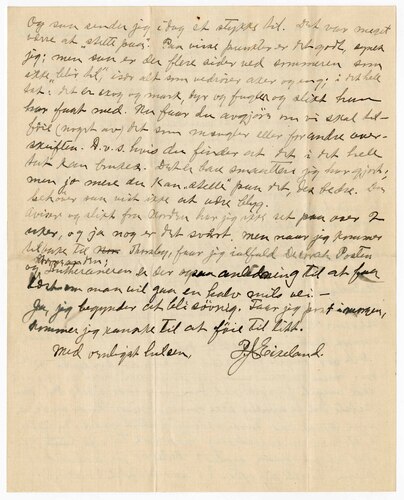 Og saa sender jeg idag et stykke til. Det var meget
være at "stelle paa". Paa visse punkter er det godt, synes
jeg; men saa er den flere sider ved sommeren som
ikke "blir til", især alt som vedrører aker og eng; i det hele
tat: det er skog og mark, dyr og fugler og slikt han
har faat med. Nu faar du avgjøre om vi skal til-
føie (noget av) det som mangler eller forandre over-
skriften. D.v.s. hvis du finder at det i det hele
tat kan brukes. Det er bare smaatteri jeg har gjort,
men jo mere du kan stelle paa det, des bedre. Du
behøver saa vist ikke at være bly.
Aviser og slikt fra Norden har jeg ikke set paa over 2
uker, og ja nog er det svært. Men naar jeg kommer
tilbake til Thorsby, faar jeg ialfald Decorah Posten
og Lutheraneren, en sier anledning til at faa
det om man vil gaa en halv mils vei –
Ja, jeg begynder at bli søvnig. Faar jeg post imorgen,
kommer jeg kanske til at føie til litt.
Med venligst hilsen,